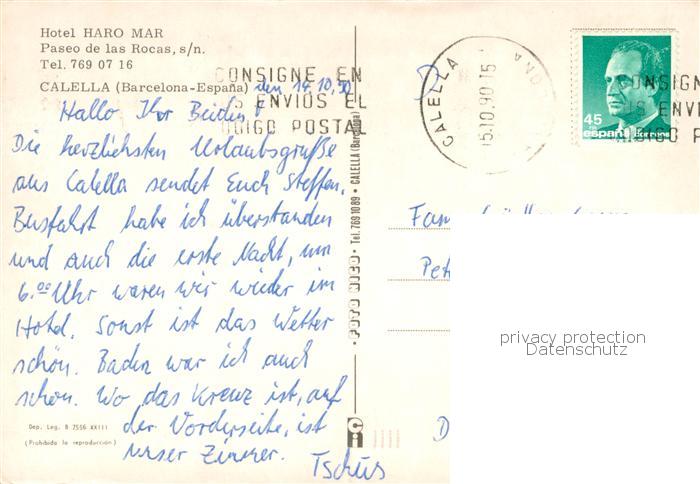 Hotel HARO MAR
Paseo de las Rocas, s/n.
Tel. 769 07 16
CALELLA (Barcelona-España) den 14.10.90
CONSIGNE EN
ENVIOS EL
POSTAL
Hallo Ihr Beiden!
Die herzlichsten Urlaubsgrüße
aus Calella sendet Euch Steffen.
Busfahrt habe ich überstanden
und auch die erste Nacht, um
6.00 Uhr waren wir wieder im
Hotel. Sonst ist das Wetter
schön. Baden war ich auch
schon. Wo das Kreuz ist, auf
der Vorderseite, ist
unser Zimmer.
Tschüs
Dep. Leg. B 7556 XXIII
(Prohibida la reproducción)
Tel. 769 10 89 • CALELLA (Barcelona)
CALELLA
15.10.90 15
CONSIGN
ENVI
45
españa correos
Fam
Pet
D
privacy protection
Datenschutz